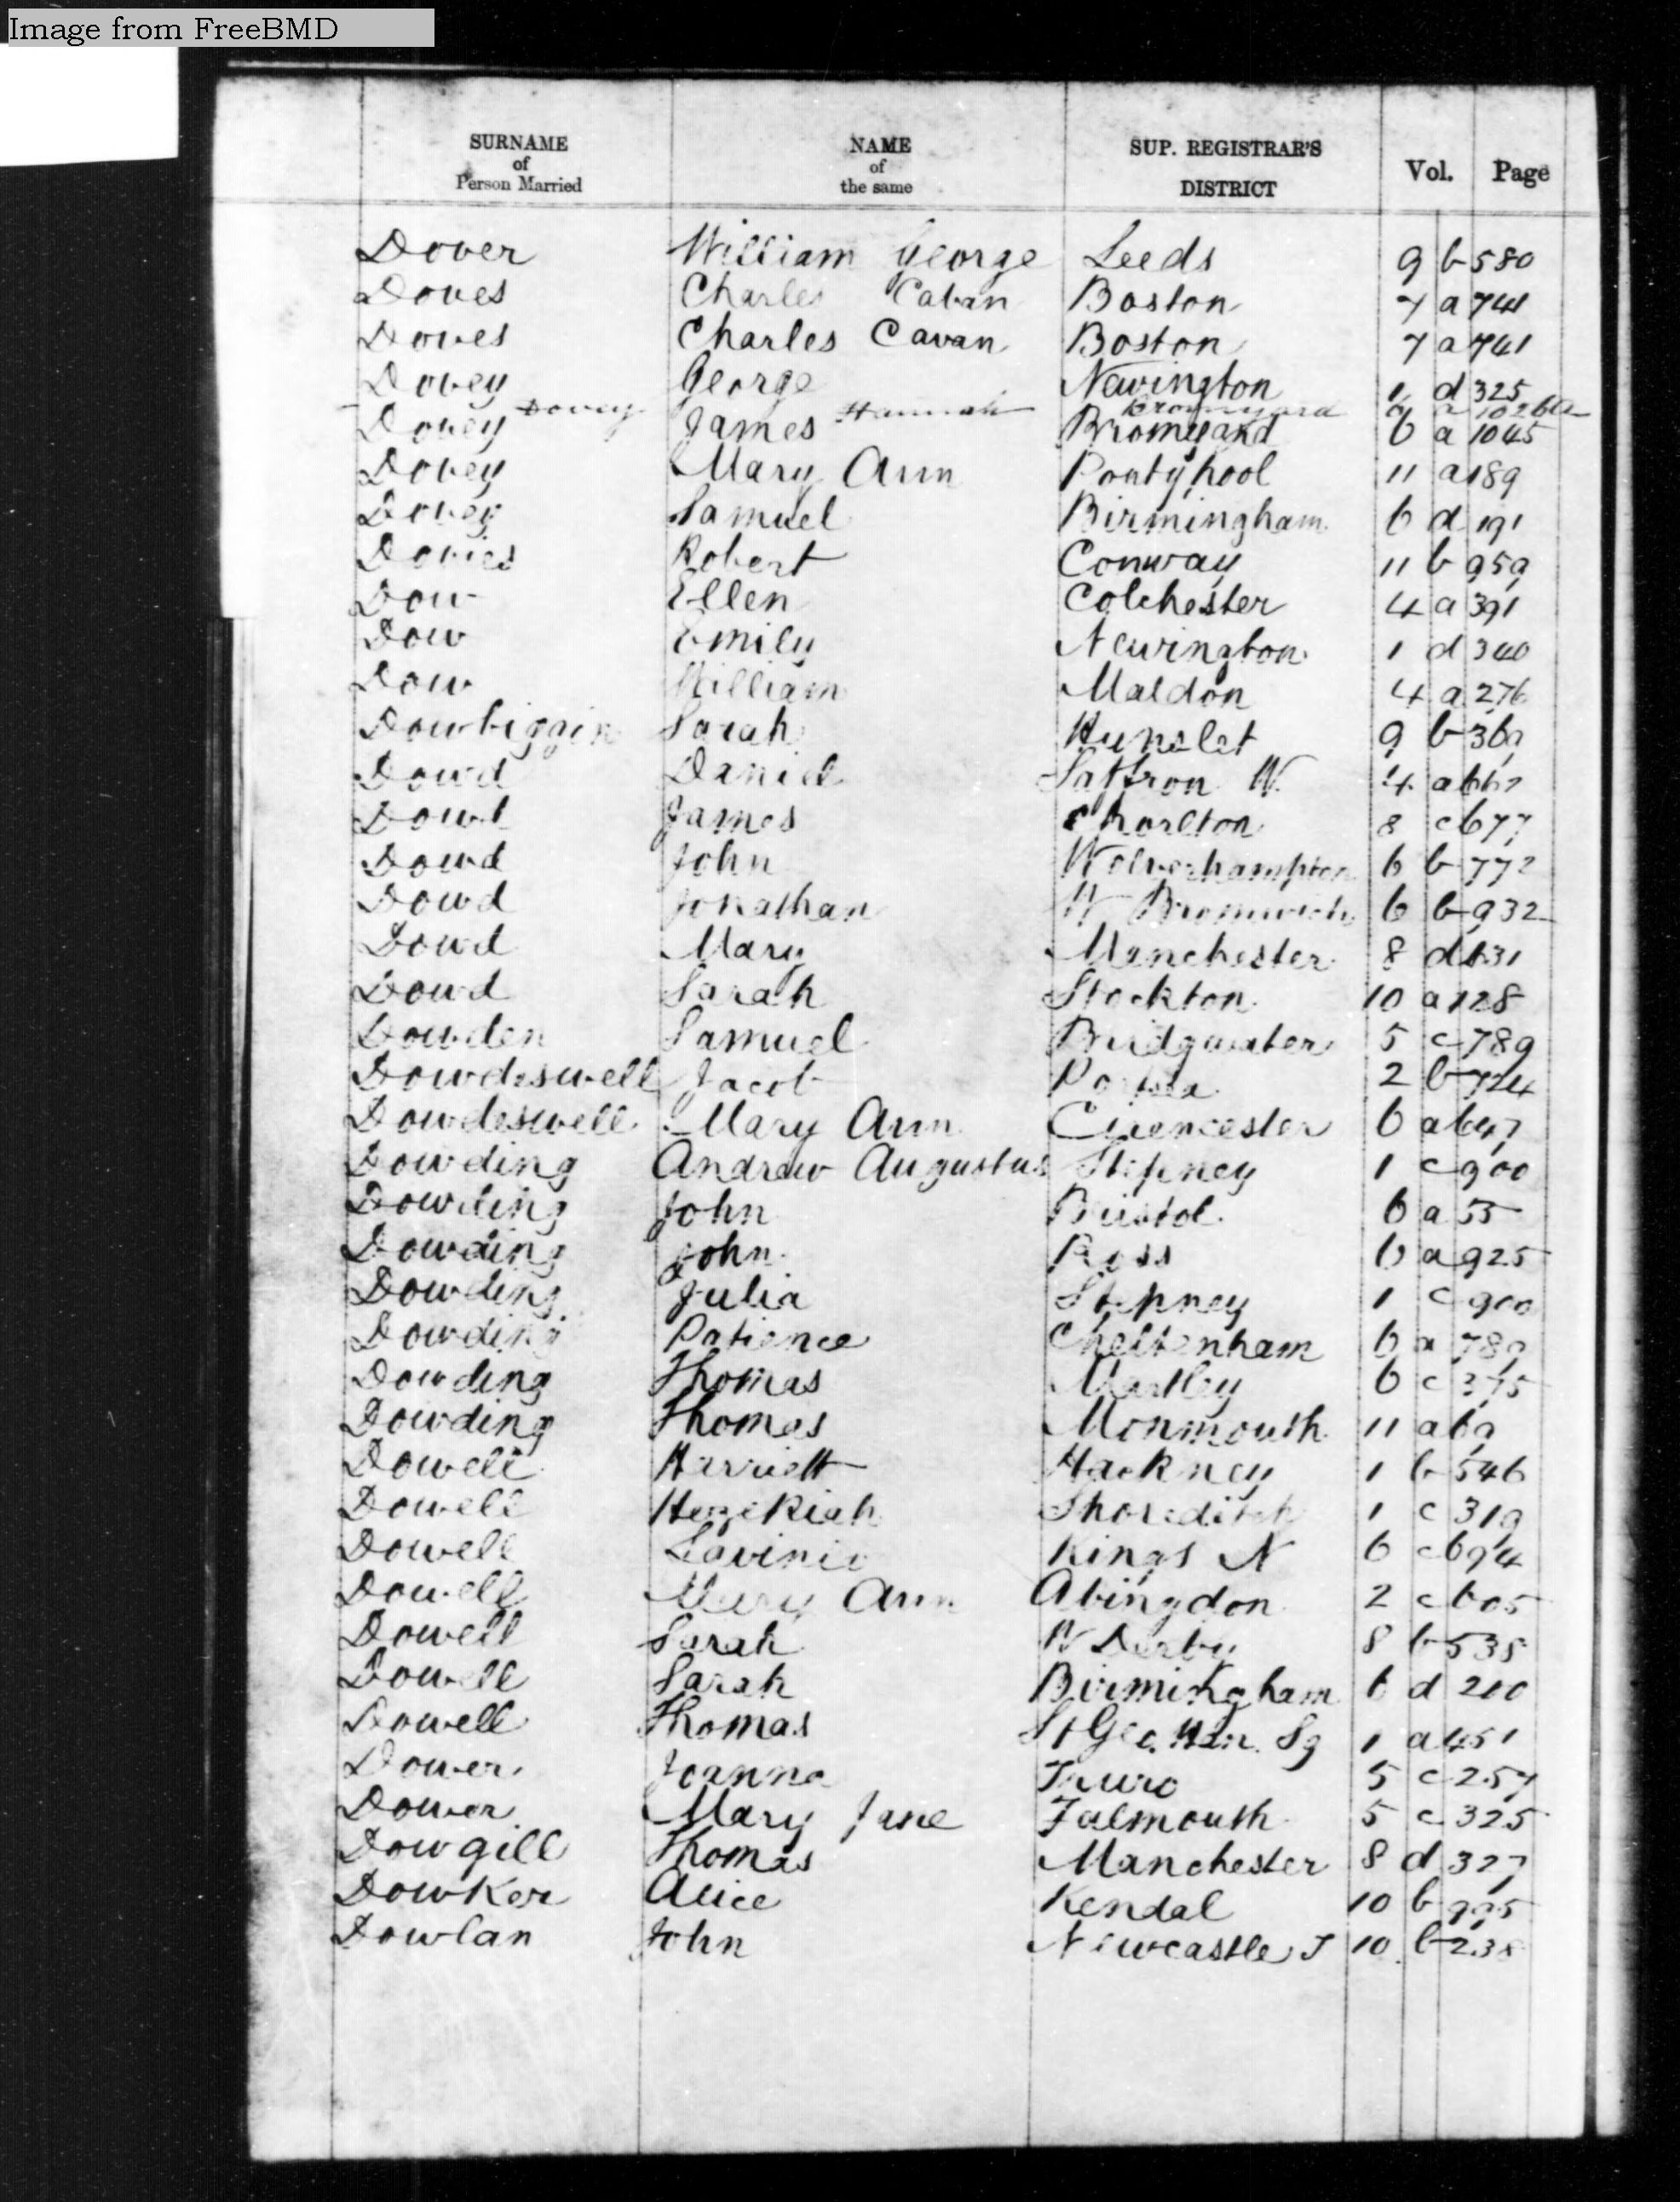 Image from FreeBMD
SURNAME of Person Married NAME of the same SUP. REGISTRAR'S DISTRICT Vol. Page
Dover William George Leeds 9 b 580
Doves Charles Caban Boston 7 a 741
Doves Charles Cavan Boston 7 a 741
Dovey George Newington 1 d 325
Dovey Hannah Bromyard 6 a 1026a
Dovey James Bromyard 6 a 1045
Dovey Mary Ann Pontypool 11 a 189
Dovey Samuel Birmingham 6 d 191
Dovies Robert Conway 11 b 959
Dow Ellen Colchester 4 a 391
Dow Emily Newington 1 d 340
Dow William Maldon 4 a 276
Dowbiggin Sarah Hunslet 9 b 369
Dowd Daniel Saffron W. 4 a 667
Dowd James Chorlton 8 c 677
Dowd John Wolverhampton 6 b 772
Dowd Jonathan W Bromwich 6 b 932
Dowd Mary Manchester 8 d 631
Dowd Sarah Stockton 10 a 128
Dowden Samuel Bridgwater 5 c 789
Dowdeswell Jacob Portsea 2 b 724
Dowdeswell Mary Ann Cirencester 6 a 647
Dowding Andrew Augustus Stepney 1 c 900
Dowding John Bristol 6 a 55
Dowding John Ross 6 a 925
Dowding Julia Stepney 1 c 900
Dowding Patience Cheltenham 6 a 789
Dowding Thomas Martley 6 c 375
Dowding Thomas Monmouth 11 a 69
Dowell Harriett Hackney 1 b 546
Dowell Hezekiah Shoreditch 1 c 319
Dowell Lavinia Kings N 6 c 694
Dowell Mary Ann Abingdon 2 c 605
Dowell Sarah W Derby 8 b 538
Dowell Sarah Birmingham 6 d 200
Dowell Thomas St Geo. Han. Sq 1 a 451
Dower Joanna Truro 5 c 257
Dower Mary Jane Falmouth 5 c 325
Dowgill Thomas Manchester 8 d 327
Dowker Alice Kendal 10 b
Dowlan John Newcastle T 10 b 238